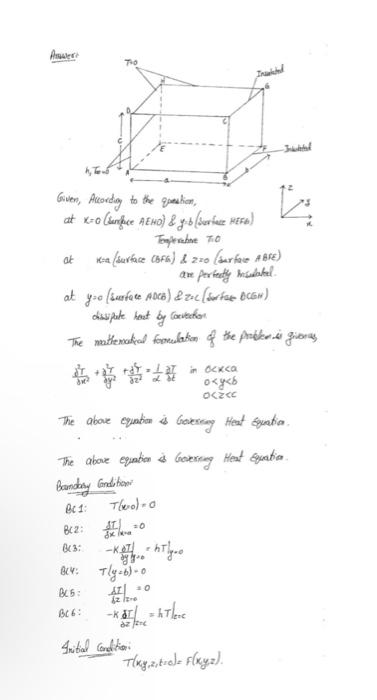 Answer:
T=0
Insulated
H
G
D
C
c
E
F
Insulated
h, T∞=0
A
a
B
b
z
y
x
Given, According to the question,
at x=0 (surface AEHD) & y=b (surface HEFG)
Temperature T=0
at x=a (surface CBFG) & z=0 (surface ABFE)
are perfectly insulated.
at y=0 (surface ADCB) & z=c (surface DCGH)
dissipate heat by convection
The mathematical formulation of the problem is given as,
∂²T/∂x² + ∂²T/∂y² + ∂²T/∂z² = 1/α ∂T/∂t in 0<x<a
0<y<b
0<z<c
The above equation is Governing Heat Equation.
...
The above equation is Governing Heat Equation.
Boundary Conditions
BC1: T(x=0) = 0
BC2: ∂T/∂x|x=a = 0
BC3: -K ∂T/∂y|y=0 = hT|y=0
BC4: T(y=b) = 0
BC5: ∂T/∂z|z=0 = 0
BC6: -K ∂T/∂z|z=c = hT|z=c
Initial Condition:
T(x,y,z,t=0) = F(x,y,z).